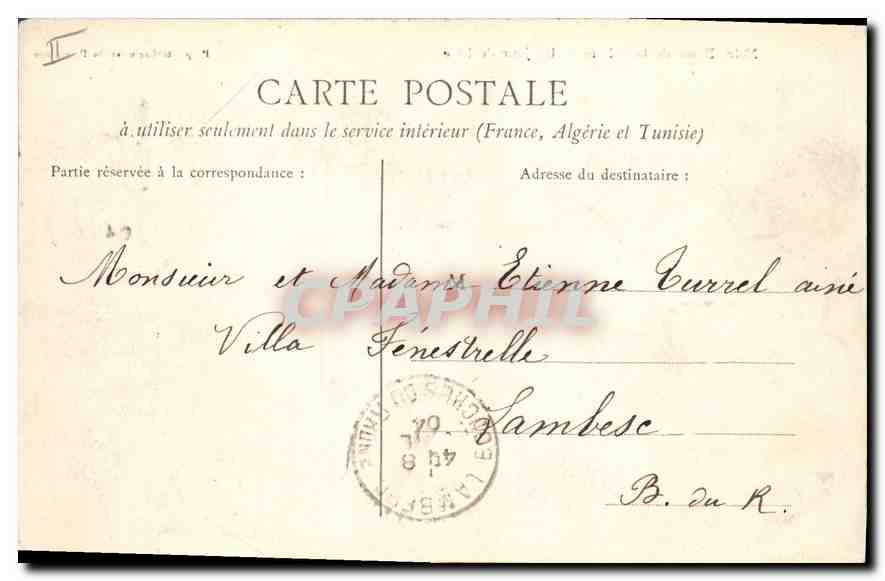 II
CARTE POSTALE
à utiliser seulement dans le service intérieur (France, Algérie et Tunisie)
Partie réservée à la correspondance :
Adresse du destinataire :
Monsieur et Madame Etienne Turrel ainé
CPAPHIL
Villa Fénestrelle
Lambesc
B. du R.
LAMBESC BOUCHES DU RHONE